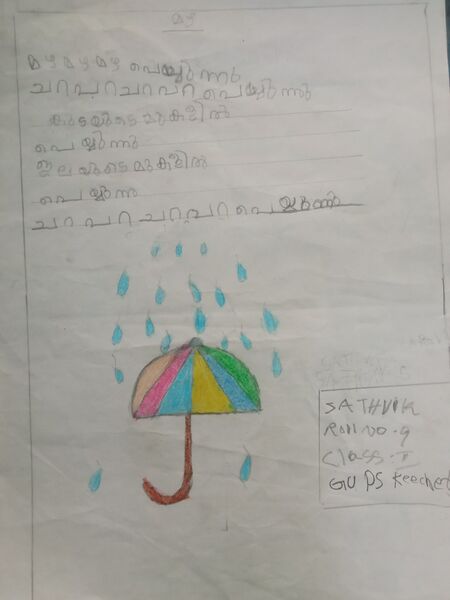 മഴ
മഴ മഴ മഴ പെയ്യുന്നു
ചറപറ ചറപറ പെയ്യുന്നു
കുടയുടെ മുകളിൽ
പെയ്യുന്നു
ഇലയുടെ മുകളിൽ
പെയ്യുന്നു
ചറ പറ ചറപറ പെയ്യുന്നു
SATHVIK
Roll no. 9
Class - I
GUPS